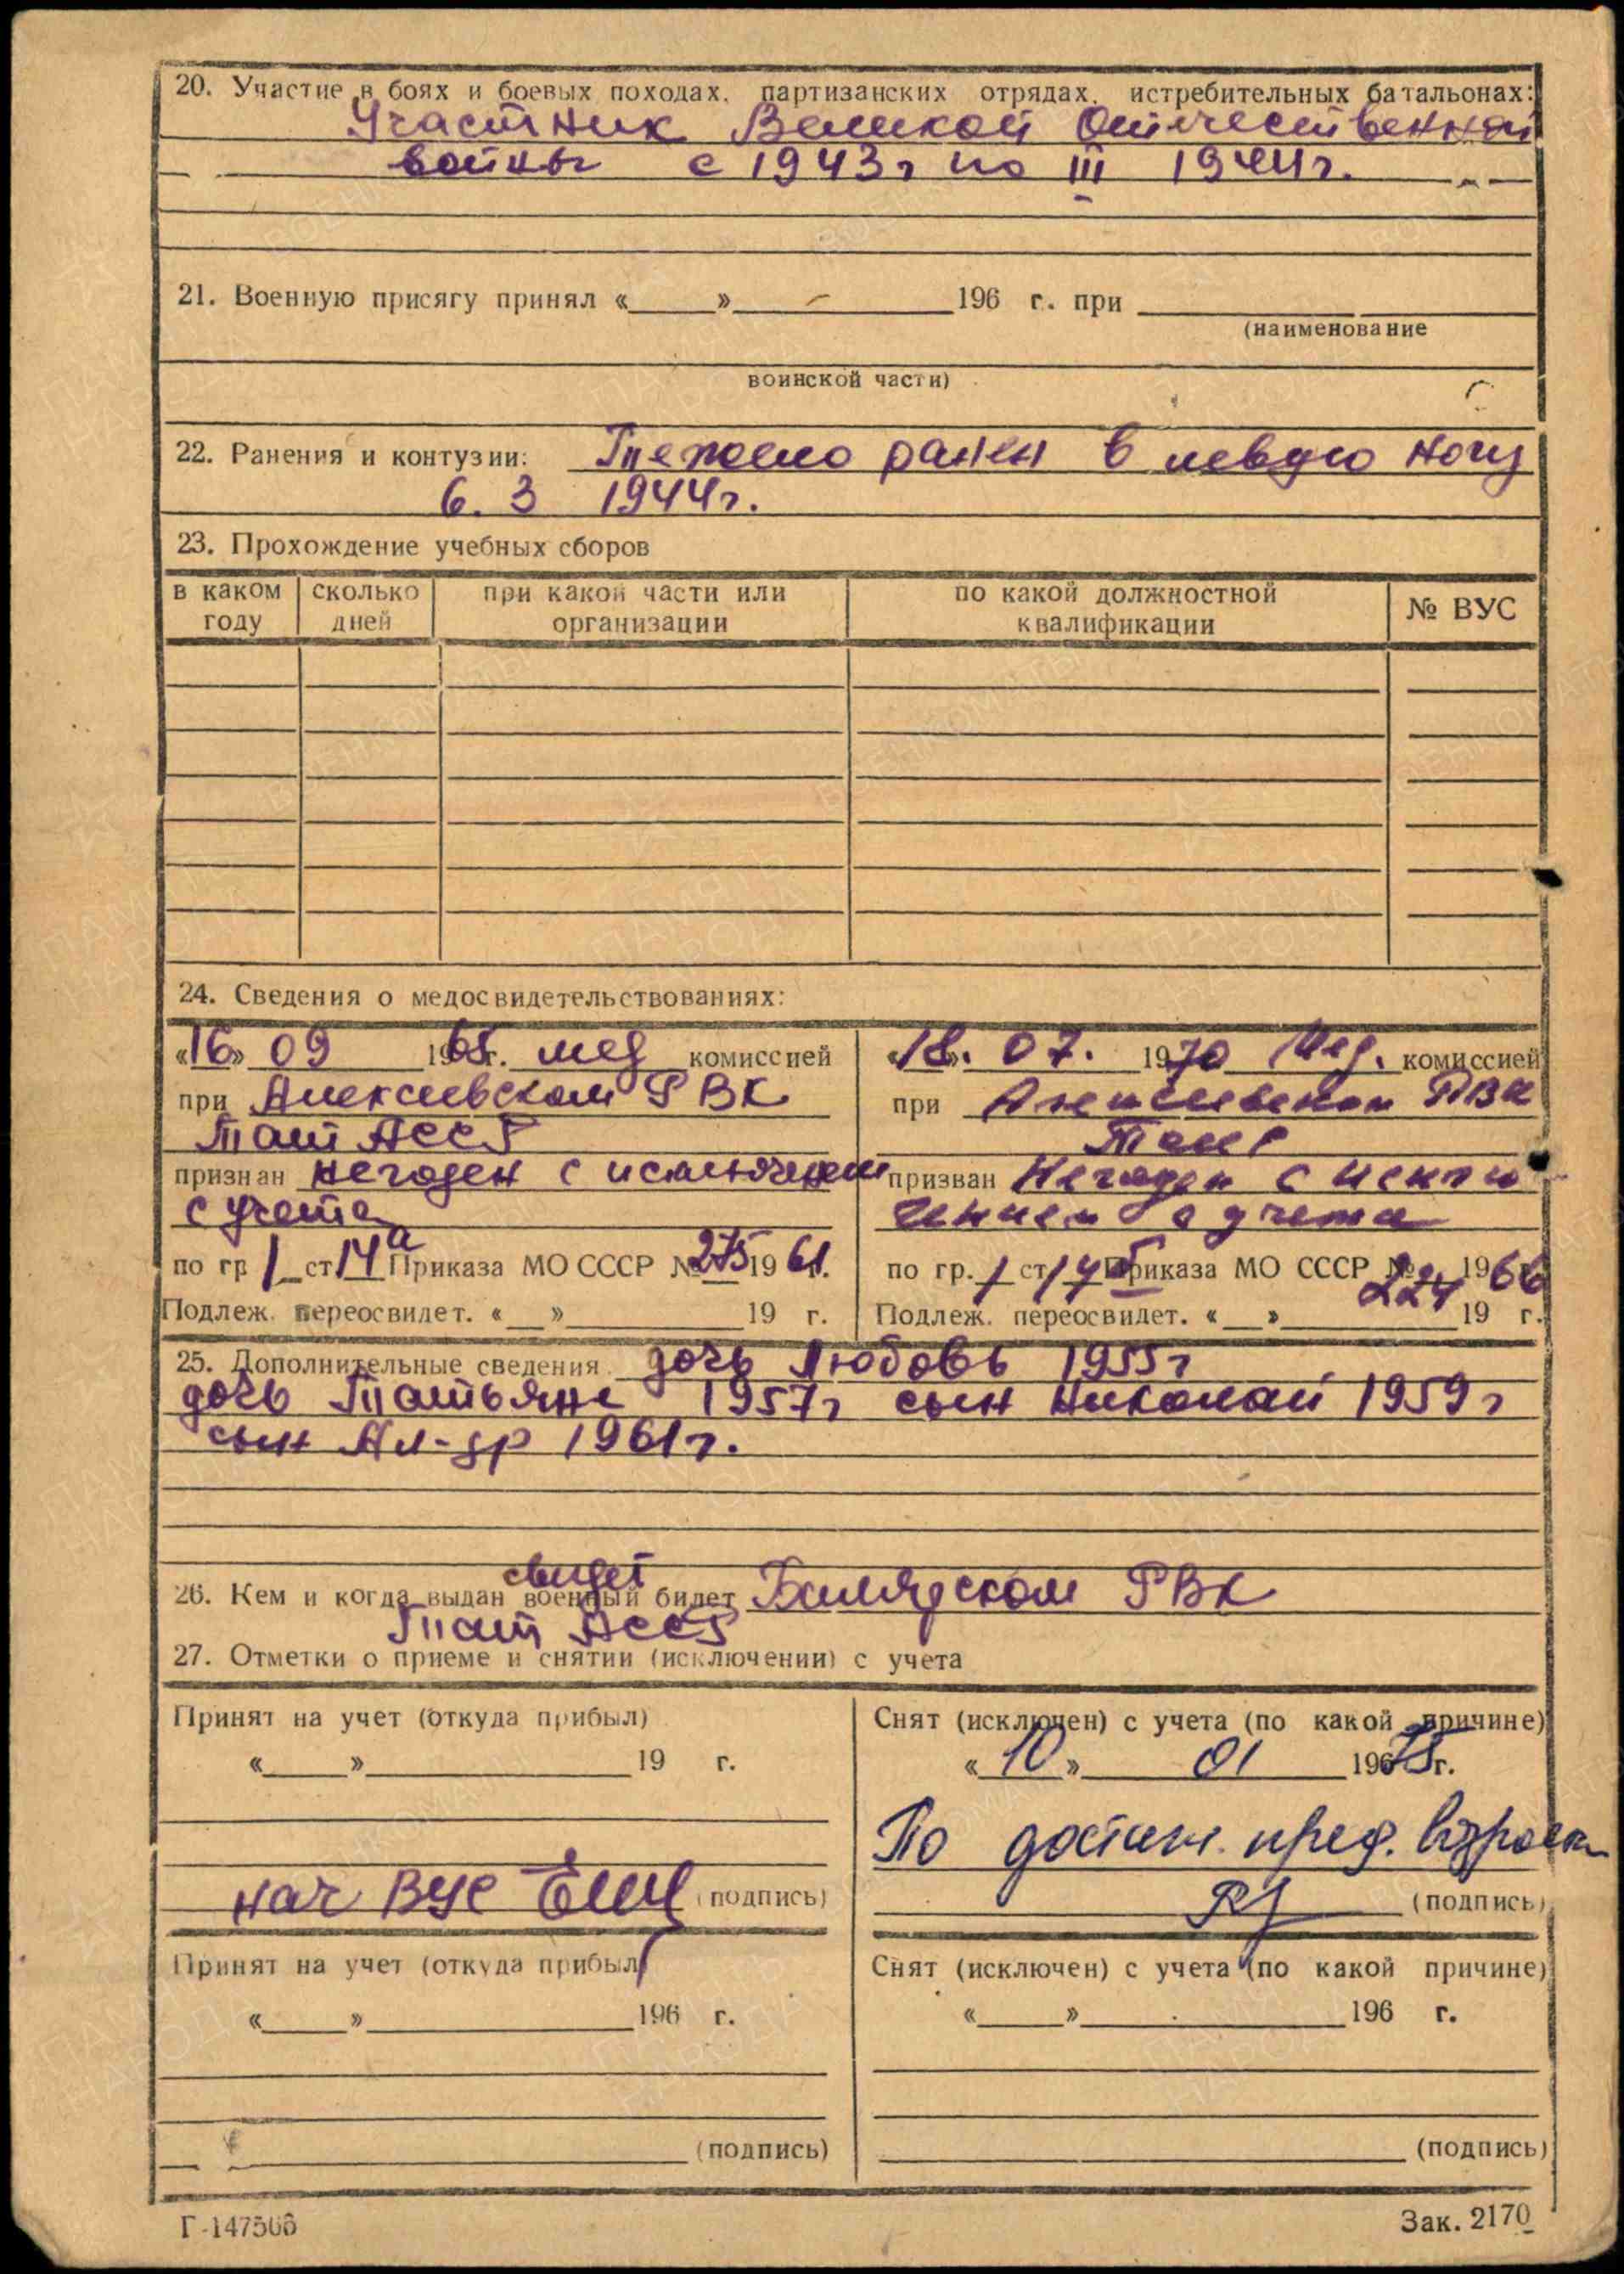 20. Участие в боях и боевых походах, партизанских отрядах, истребительных батальонах:
Участник Великой Отечественной
войны с 1943г по III 1944г.
21. Военную присягу принял «   » – 196 г. при
(наименование
воинской части)
22. Ранения и контузии: Тяжело ранен в левую ногу
6. 3 1944г.
23. Прохождение учебных сборов
в каком году | сколько дней | при какой части или организации | по какой должностной квалификации | № ВУС
24. Сведения о медосвидетельствованиях:
«16» 09 1965г. мед комиссией
при Алексеевском РВК
Тат АССР
признан негоден с исключением
с учета
по гр 1 ст 14а Приказа МО СССР № 275 1961г.
Подлеж. переосвидет. «   » 19 г.
«18». 07. 1970 Мед. комиссией
при Алексеевском РВК
призван Негоден с исклю
чением с учета
по гр. 1 ст 14б Приказа МО СССР № 224 1966 г.
Подлеж. переосвидет. «   » 19 г.
25. Дополнительные сведения дочь Любовь 1955г
дочь Татьяна 1957г сын Николай 1959г
сын Ал-др 1961г.
свидет
26. Кем и когда выдан военный билет Билярском РВК
Тат АССР
27. Отметки о приеме и снятии (исключении) с учета
Принят на учет (откуда прибыл)
«   » 19 г.
нач ВУС (подпись)
Снят (исключен) с учета (по какой причине)
«10» 01 1975г.
По достиж. пред. возраста
(подпись)
Принят на учет (откуда прибыл)
«   » 196 г.
(подпись)
Снят (исключен) с учета (по какой причине)
«   » 196 г.
(подпись)
Г-147506
Зак. 2170